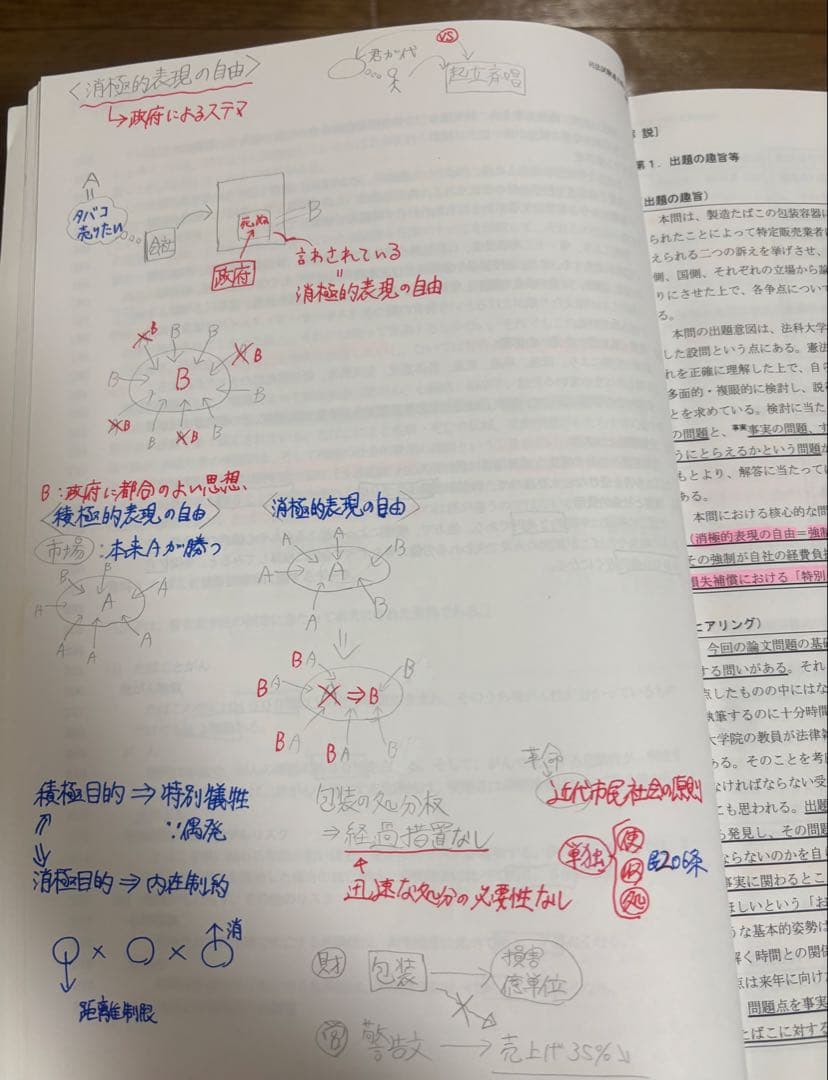 <消極的表現の自由>
→政府によるステマ
君が代
VS
起立斉唱
A
=
タバコ
売りたい
会社
B
政府
言わされている
=
消極的表現の自由
B B B
B
B
B
B
B B B B
B:政府に都合のよい思想
<積極的表現の自由>
市場:本来Aが勝つ
B B A
A A
A A A
<消極的表現の自由>
A A B
A A
A B
BA B
BA A⇒B
BA BA B
積極目的⇒特別犠牲
∵偶発
消極目的⇒内在制約
○×○×○ 消
距離制限
包装の処分権
⇒経過措置なし
迅速な処分の必要性なし
革命
近代市民社会の原則
単独
使
収
処
民206条
財 包装 → 損害
億単位
警告文→売上げ35%↓
解説]
第1.出題の趣旨等
出題の趣旨)
本問は、製造たばこの包装容器に
られたことによって特定販売業者に
えられる二つの訴えを挙げさせ、
側、国側、それぞれの立場から論
りにさせた上で、各争点につい
る。
本問の出題意図は、法科大学
した設問という点にある。憲法
れを正確に理解した上で、自
多面的・複眼的に検討し、説
とを求めている。検討に当た
の問題と、事実の問題、す
うにとらえるかという問題が
もとより、解答に当たっては
ある。
本問における核心的な問
(消極的表現の自由=強制
その強制が自社の経費負担
損失補償における「特別
ヒアリング)
今回の論文問題の基礎
する問いがある。それ
点したものの中にはな
執筆するのに十分時間
大学院の教員が法律雑
ある。そのことを考慮
なければならない受
こも思われる。出題
ら発見し、その問題
ならないのかを自
事実に関わるとこ
ほしいという「お
うな基本的姿勢は
解く時間との関係
点は来年に向けた
問題点を事実
たばこに対する